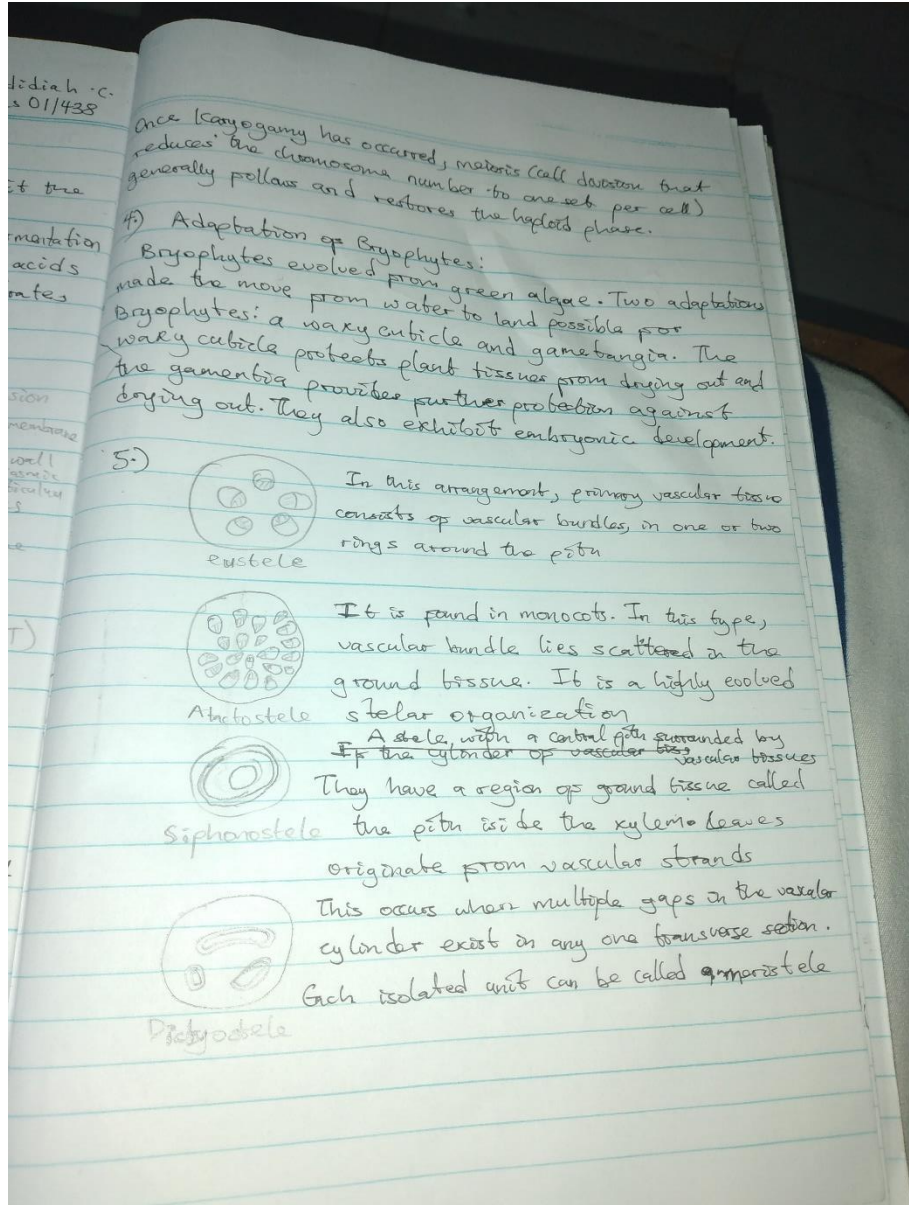 didiah .C.
s 01/438
it the
mentation
acids
rates
sion
membrane
wall
s
e
T)
Once Karyogamy has occurred, meiosis (cell division that
reduces the chromosome number to one set per cell)
generally follows and restores the haploid phase.
4.) Adaptation of Bryophytes:
Bryophytes evolved from green algae. Two adaptations
made the move from water to land possible for
Bryophytes: a waxy cuticle and gametangia. The
waxy cuticle protects plant tissues from drying out and
the gamentia provides further protection against
drying out. They also exhibit embryonic development.
5.)
In this arrangement, primary vascular tissue
consists of vascular bundles, in one or two
rings around the pith
eustele
It is found in monocots. In this type,
vascular bundle lies scattered in the
ground tissue. It is a highly evolved
stelar organization
Atactostele
A stele with a central pith surrounded by
If the cylinder of vascular tiss
vascular tissues
They have a region of ground tissue called
the pith iside the xylem. leaves
originate from vascular strands
Siphonostele
This occurs when multiple gaps in the vascular
cylinder exist in any one transverse section.
Each isolated unit can be called a meristele
Dictyostele